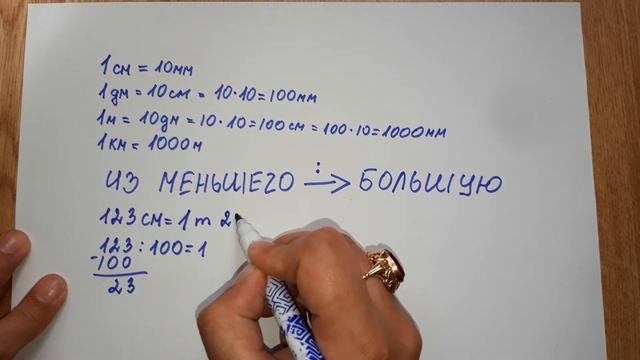 1 см = 10мм
1 дм = 10см = 10·10=100мм
1м = 10дм = 10·10=100см = 100·10=1000мм
1 км = 1000м
ИЗ МЕНЬШЕГО —:—> БОЛЬШУЮ
123 см = 1 m 2
123 : 100 = 1
-100
23